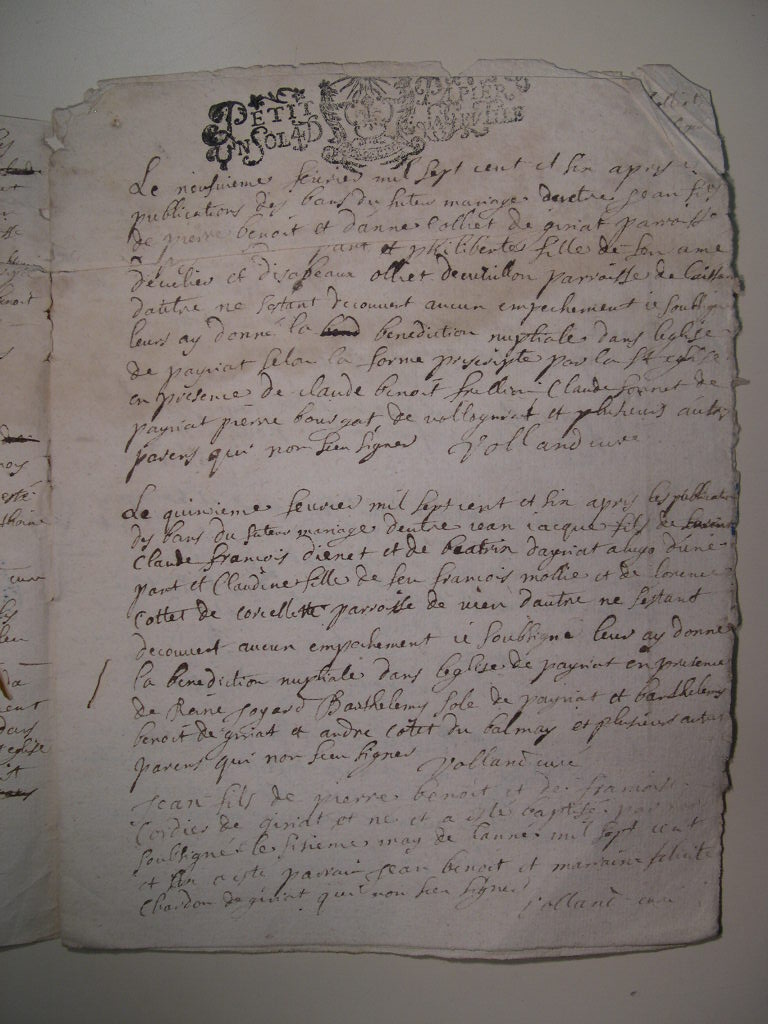 PETIT PAPIER
UN SOL 4 D LA FEUILLE
Le neufvieme febvrier mil sept cent et six apres
publications des bans du futur mariage dentre Jean fils
de pierre benoit et danne Colliet de giriat parroisse
part et philiberte fille de feu ame
decuelier et disabeau olliet parroisse de
dautre ne sestant decouvert aucun empechement ie soubsigne
leurs ay donné la benediction nuptiale dans leglise
de payriat selon la forme prescripte par la Ste eglise
en presence de claude benoit Claude
payriat pierre de vallogniat et plusieurs autres
parens qui non sceu signer Volland cure
Le quinzieme fevrier mil sept cent et six apres les publications
des bans du futur mariage dentre iean iacque fils de
Claude francois dienet et de beatrix dapriat dune
part et Claudine fille de feu francois mollie et de lorence
Cottet de corcellette parroisse de vieu dautre ne sestant
decouvert aucun empechement ie soubsigné leur ay donné
la benediction nuptiale dans leglise de payriat en presence
de Reine Joyard Barthelemy sole de payriat et barthelemy
benoit de giriat et andre cotet du balmay et plusieurs autres
parens qui non sceu signer volland curé
Jean fils de pierre benoit et de francoise
Cordier de giriat est ne et a esté baptisé par moy
soubsigné le sisieme may de lannee mil sept cent
et six a esté parrain Jean benoit et marraine felicite
Chardon de giriat qui non sceu signer volland curé